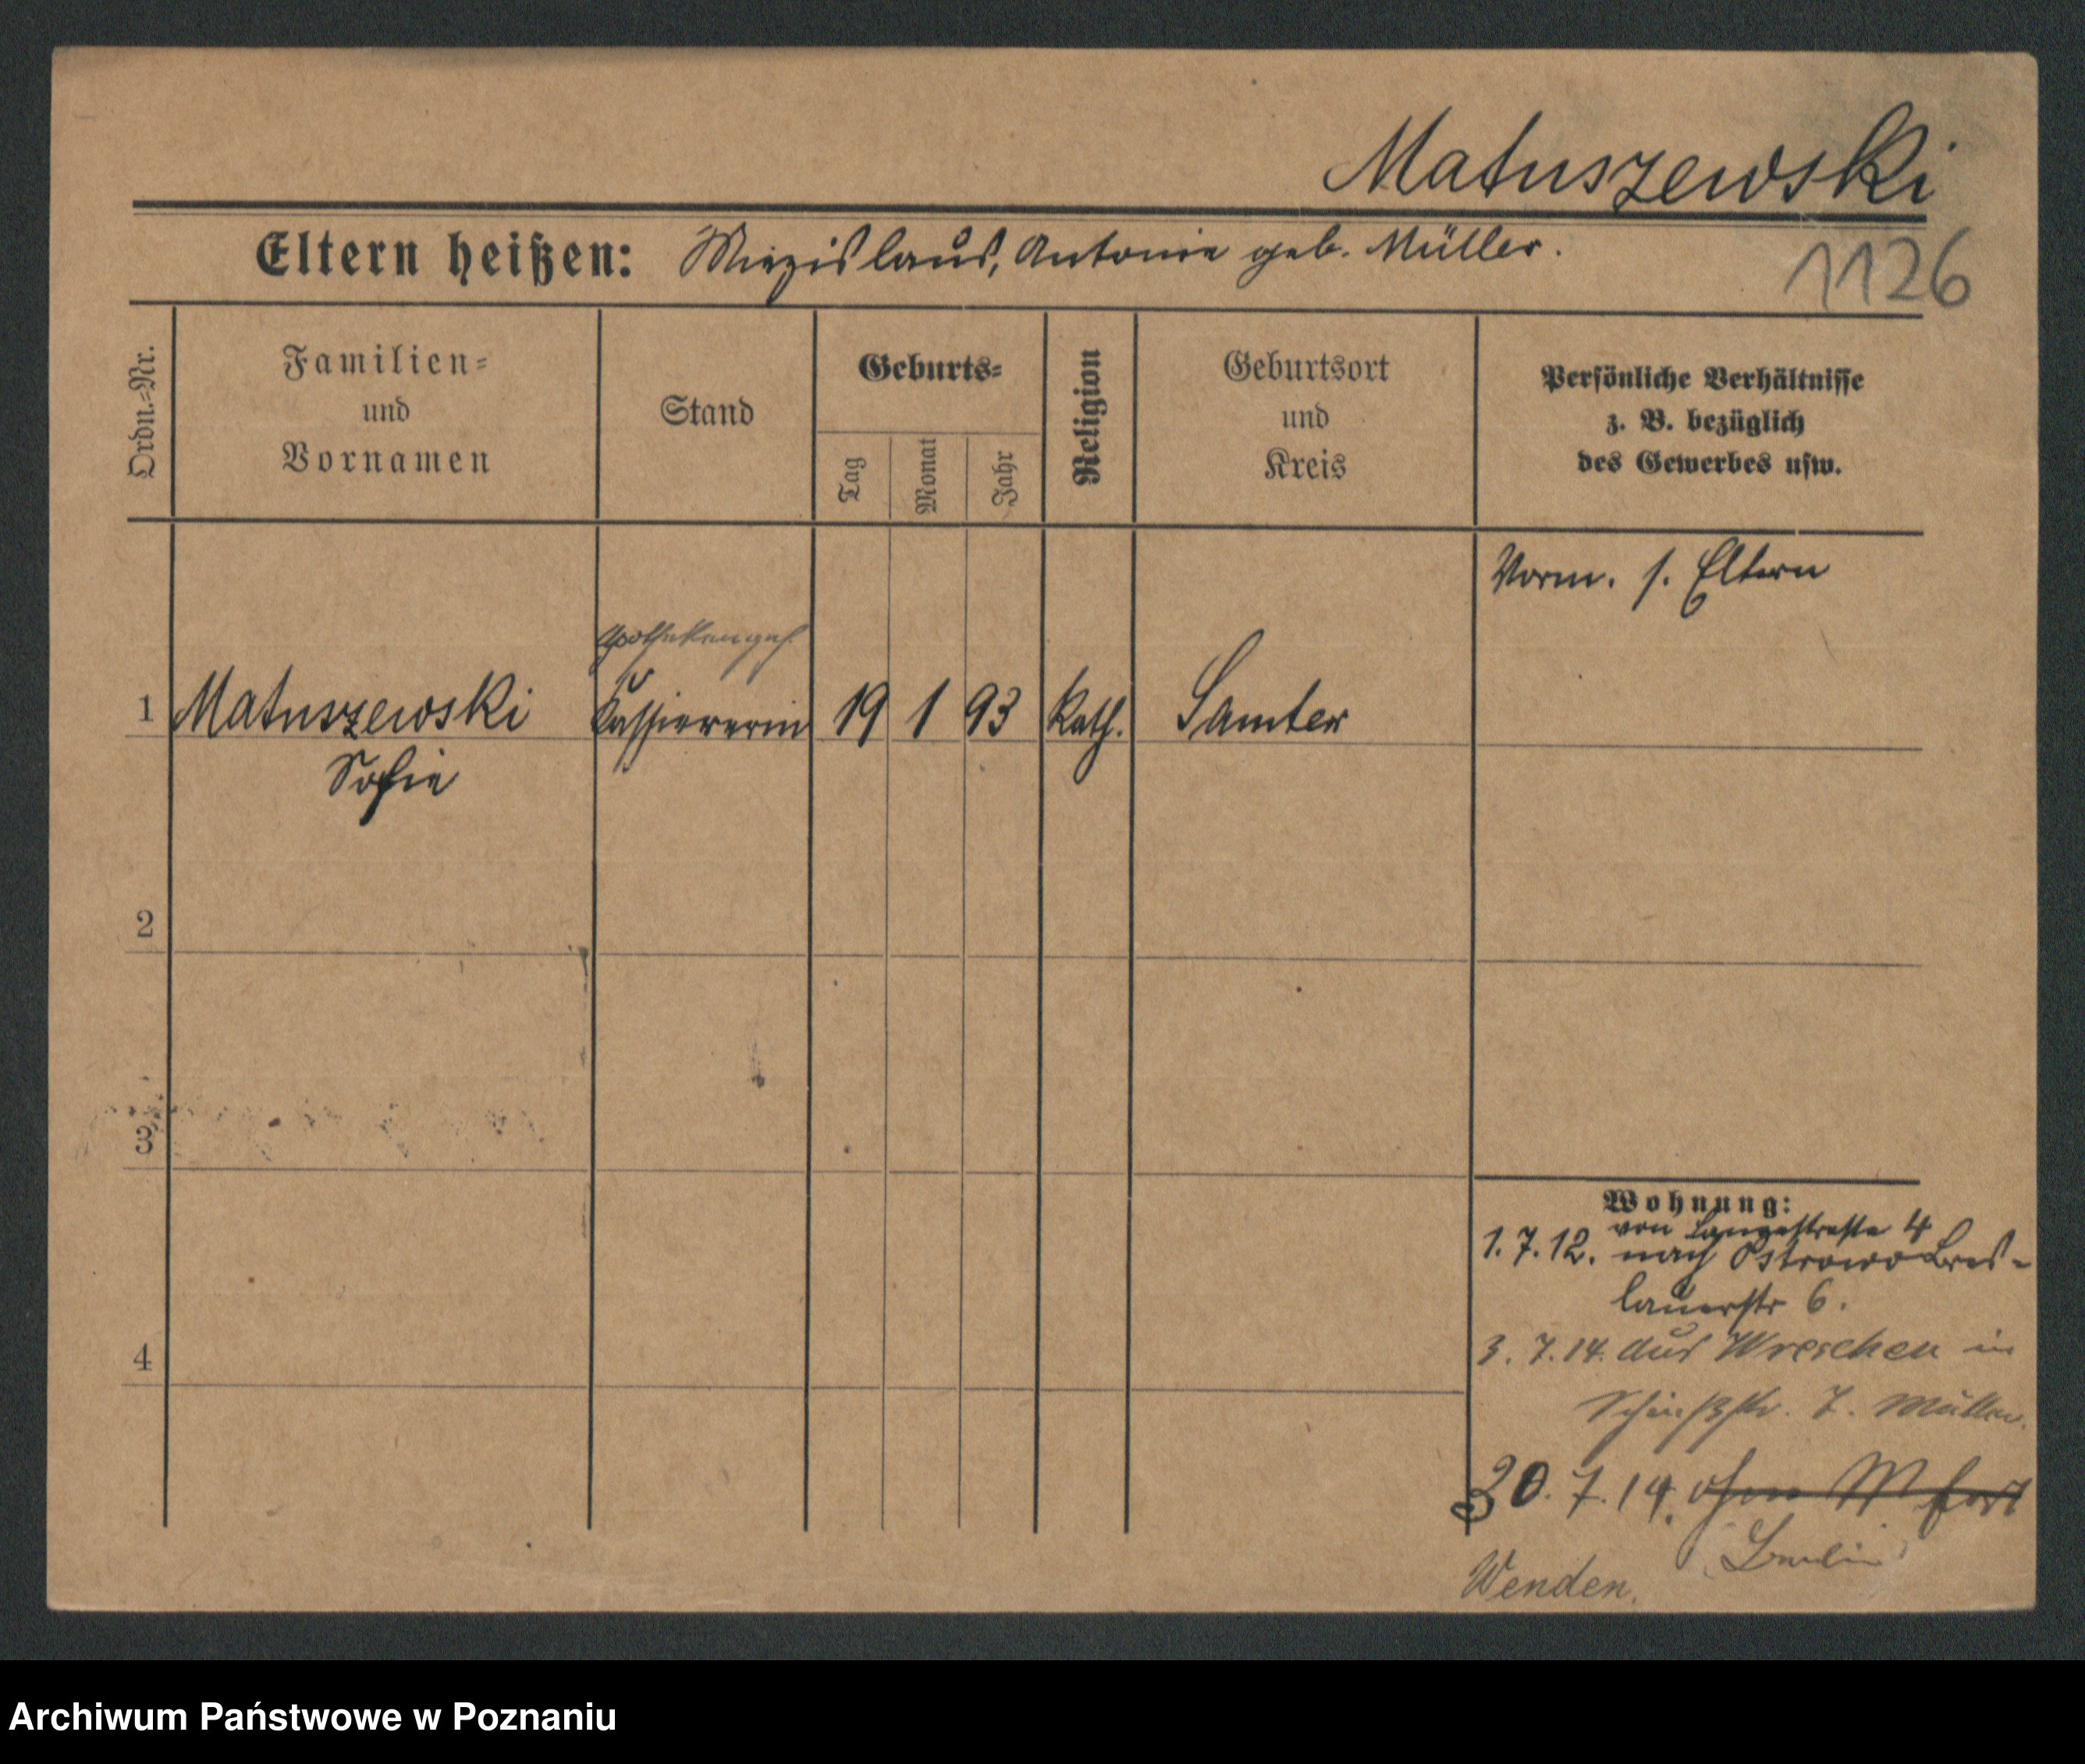 Matuszewski
Eltern heißen: Miezislaus, Antonie geb. Müller.
1126
Ordn.-Nr.
Familien-
und
Vornamen
Stand
Geburts-
Tag
Monat
Jahr
Religion
Geburtsort
und
Kreis
Persönliche Verhältnisse
z. B. bezüglich
des Gewerbes usw.
Vorm. s. Eltern
Apothekengeh.
1 Matuszewski Kassiererin 19 1 93 Kath. Samter
Sofie
2
3
4
Wohnung:
von Langestraße 4
1.7.12. nach Ostrowo Bres-
lauerstr 6.
3.7.14. aus Wreschen in
Schießstr. 7. Müller.
30.7.14. ohne M fort
Berlin
Wenden.
Archiwum Państwowe w Poznaniu